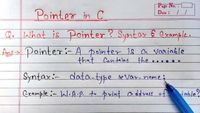 Page No.
Date: / /
Pointer in C
Q. What is Pointer? Syntax & Example.
Ans → Pointer:- A pointer is a variable
that contains the ......
Syntax:- data-type *var-name;
Example:- W.A.P. to print address of variable?